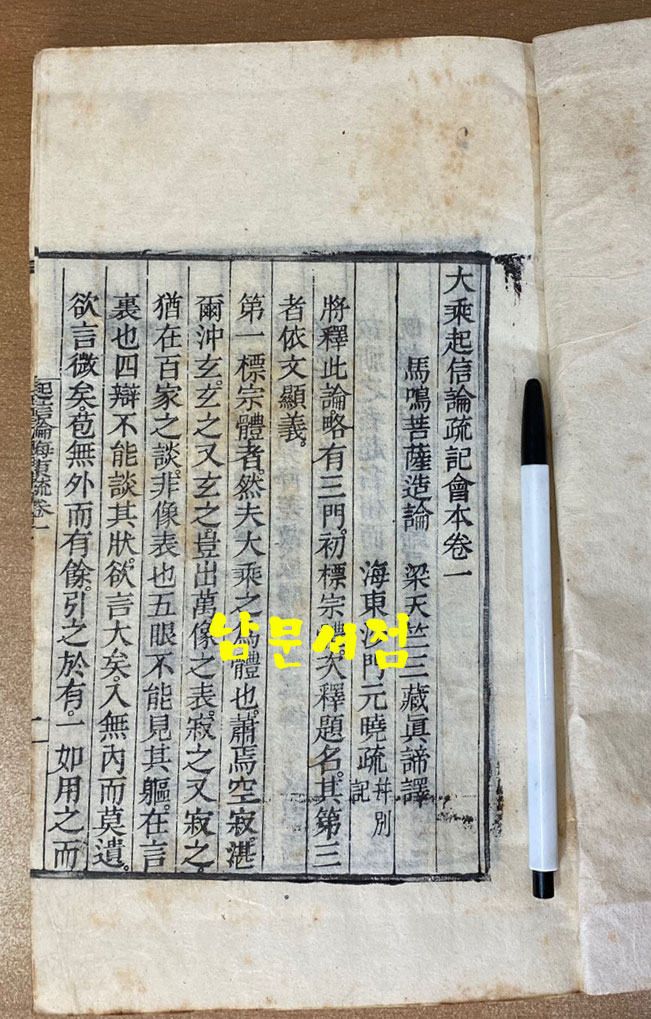 大乘起信論疏記會本卷一
馬鳴菩薩造論 梁天竺三藏眞諦譯
海東沙門元曉疏 幷別記
將釋此論。略有三門。初標宗體。次釋題名。其第三
者依文顯義。
第一標宗體者。然夫大乘之爲體也。蕭焉空寂。湛
爾沖玄。玄之又玄之。豈出萬像之表。寂之又寂之。
猶在百家之談。非像表也五眼不能見其軀。在言
裏也四辯不能談其狀。欲言大矣。入無內而莫遺。
欲言微矣。苞無外而有餘。引之於有。一如用之而
起信論海東疏卷一
一
남문서점